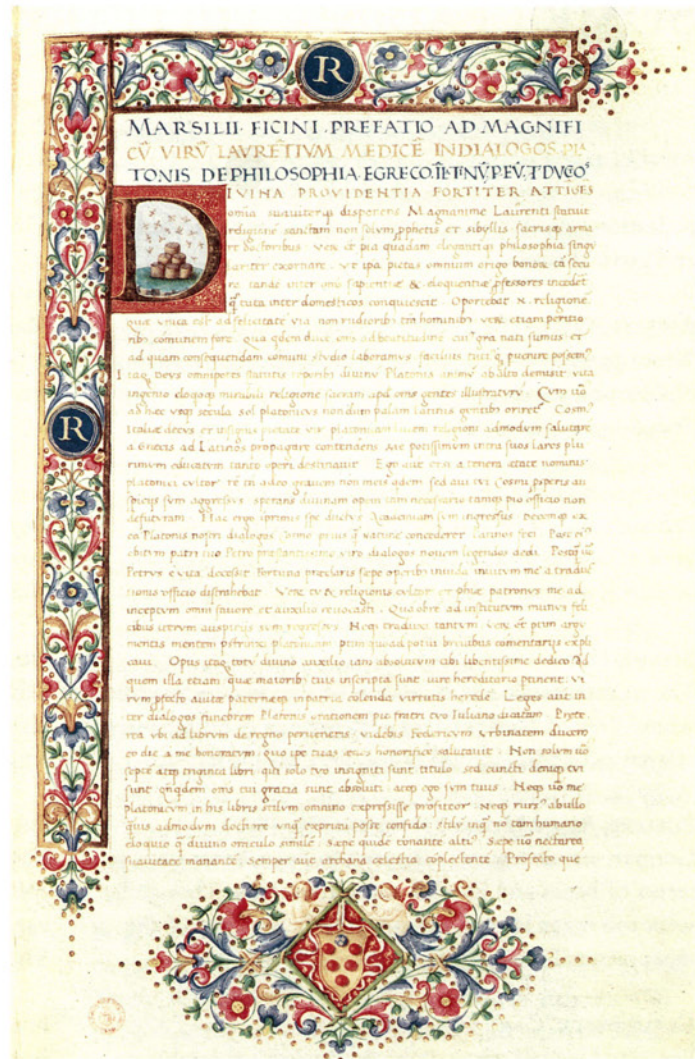 R
MARSILII · FICINI · PREFATIO AD MAGNIFI
CŪ VIRŪ LAVRĒTIVM MEDICĒ IN DIALOGOS · PLA
TONIS DE PHILOSOPHIA E GRECO
DIVINA PROVIDENTIA FORTITER ATTIGES
omia suauiterq disponens Magnanime Laurenti statuit
religionē sanctam non solum pphetis et sibyllis sacrisq arma
re doctoribus Verū et pia quadam elegantiq philosophia singu
lariter exornare · Vt ipa pietas omnium origo bonorū
tandē inter omīs sapientiae & eloquentiae pfessores incedet
tuta inter domesticos conquiescit · Oportebat N. religionē
quae unica est ad felicitatē via non rudioribs tm hominibs verū etiam peritio
ribs comunem fore · qua duce oms ad beatitudinē cuis gra nati sumus et
ad quam consequendam comuni studio laboramus facilius
itaq Deus omnipotens statutis tēporibs divinū Platonis animū ab alto demisit vita
ingenio eloquioq mirabili religionē sacram apd oms gentes illustraturū · Cum
ad haec usq secula sol platonicus nondum palam latinis gentibs oriretur Cosmus
Italiae decus et insignis pietate vir platonicam lucem religioni admodum salutarē
a Grecis ad Latinos propagare contendens Me potissimum intra suos lares plu
rimum educatum tanto operi destinauit · Ego aute etsi a tenera aetate nominis
platonici cultor rē tn adeo grauem non meis qdem sed aui tui Cosmi psperis au
spicijs sum aggressus sperans diuinam opem tam necessario tamq pio officio non
defuturam · Hac ergo iprimis spe ductus Academiam sum ingressus Decemq ex
ea Platonis nostri dialogos Cosmo prius q nature concederet Latinos feci · Post
obitum patri tuo Petro prestantissimo viro dialogos nouem legendos dedi · Postq
Petrus e uita decessit Fortuna preclaris sepe operibs inuida inuitum me a traduc
tionis officio distrahebat · Verū tu & religionis cultor et phiae patronus me ad
inceptum omni fauore et auxilio reuocasti · Qua obrē ad institutum munus feli
cibus iterum auspicijs sum regressus · Neq traduxi tantum verū et ptim argu
mentis mentem pstrinxi platonicam ptim quoad potui breuibus comentarijs expli
caui · Opus itaq totū diuino auxilio iam absolutum tibi libentissime dedico Ad
quem illa etiam quae maioribs tuis inscripta sunt iure hereditario ptinent · Vi
rum pfecto auitae paternaeq in patria colenda virtutis heredē · Leges aut in
ter dialogos funebrem Platonis orationem pio fratri tuo Iuliano dicatam · Prete
rea ubi ad librum de regno perueneris uidebis Federicum Vrbinatem ducem
eo die a me honoratum quo ipe tuas aedes honorifice salutauit · Non solum
septē atq triginta libri qui solo tuo insigniti sunt titulo sed cuncti deniq tui
sunt qnqdem oms tui gratia sunt absoluti atq ego sum tuus · Neq uō me
platonicum in his libris stilum omnino expressisse profiteor · Neq rurs ab ullo
quis admodum doctiore unq exprimi posse confido · stilū inq no tam humano
eloquio q diuino oraculo similē · Saepe quidē tonante altiº Saepe uō nectarea
suauitate manantē · Semper aut archana celestia cōplectentē · Profecto que
R